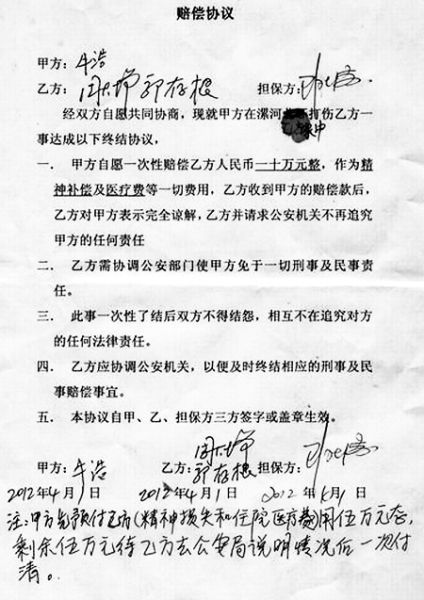 赔偿协议
甲方：牛浩
乙方：郭存根 担保方：
经双方自愿共同协商，现就甲方在漯河打伤乙方一
事达成以下终结协议，
一． 甲方自愿一次性赔偿乙方人民币一十万元整，作为精
神补偿及医疗费等一切费用，乙方收到甲方的赔偿款后，
乙方对甲方表示完全谅解，乙方并请求公安机关不再追究
甲方的任何责任
二． 乙方需协调公安部门使甲方免于一切刑事及民事责
任。
三． 此事一次性了结后双方不得结怨，相互不在追究对方
的任何法律责任。
四． 乙方应协调公安机关，以便及时终结相应的刑事及民
事赔偿事宜。
五． 本协议自甲、乙、担保方三方签字或盖章生效。
甲方：牛浩 乙方：郭存根 担保方：
2012年4月1日 2012年4月1日 2012年4月1日
注：甲方先预付乙方(精神损失和住院医疗费)用伍万元整，
剩余伍万元待乙方去公安局说明情况后一次付
清。